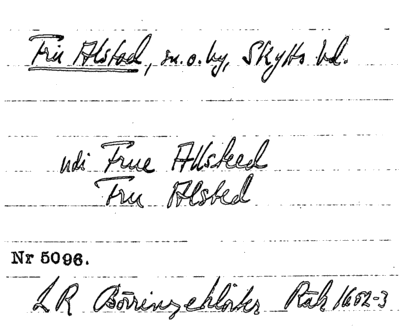 Fru Alstad, sn. o. by, Skytts hd.
udi Frue Allsteed
Fru Alsted
Nr 5096.
LR Börringeklöster Räk 1652-3